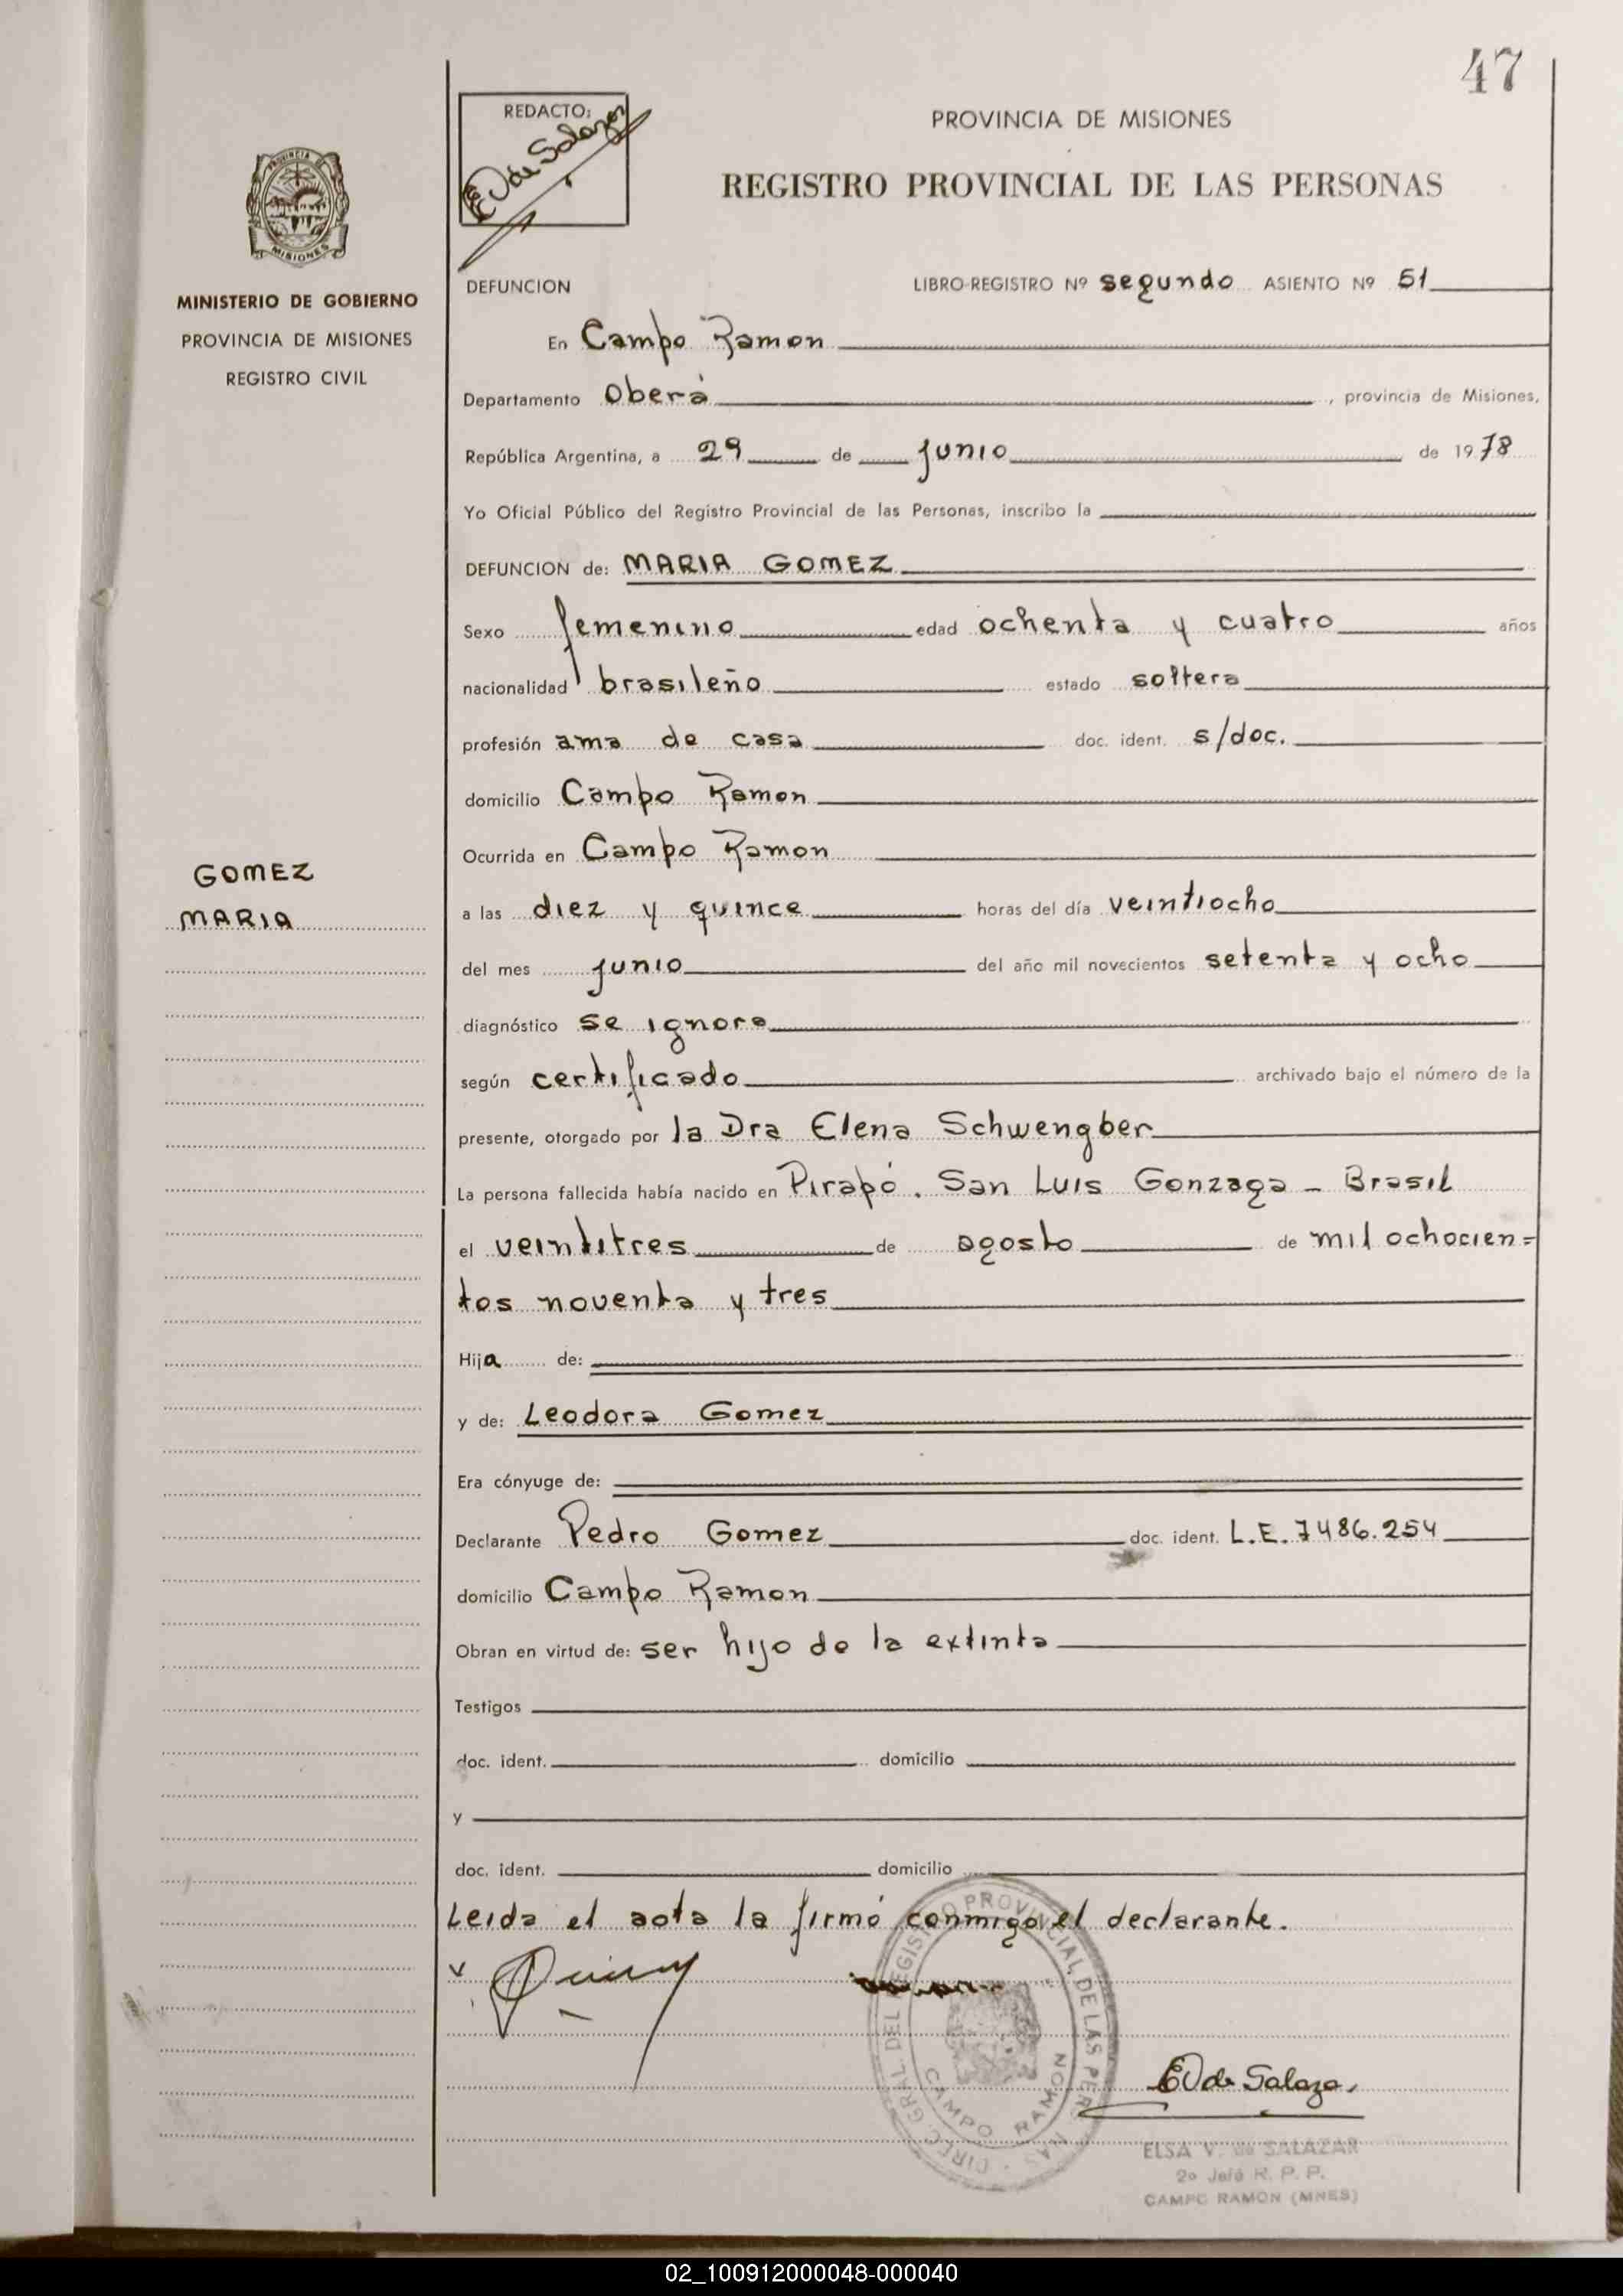 47
REDACTO:
EV de Salazar
PROVINCIA DE MISIONES
REGISTRO PROVINCIAL DE LAS PERSONAS
PROVINCIA DE
MISIONES
MINISTERIO DE GOBIERNO
PROVINCIA DE MISIONES
REGISTRO CIVIL
DEFUNCION LIBRO-REGISTRO Nº segundo ASIENTO Nº 51
En Campo Ramon
Departamento Oberá, provincia de Misiones,
República Argentina, a 29 de junio de 1978
Yo Oficial Público del Registro Provincial de las Personas, inscribo la
DEFUNCION de: MARIA GOMEZ
Sexo femenino edad ochenta y cuatro años
nacionalidad brasileño estado soltera
profesión ama de casa doc. ident. s/doc.
domicilio Campo Ramon
Ocurrida en Campo Ramon
GOMEZ
MARIA
a las diez y quince horas del día veintiocho
del mes junio del año mil novecientos setenta y ocho
diagnóstico se ignora
según certificado archivado bajo el número de la
presente, otorgado por la Dra Elena Schwengber
La persona fallecida había nacido en Pirapó. San Luis Gonzaga - Brasil
el veintitres de agosto de mil ochocien=
tos noventa y tres
Hija de:
y de: Leodora Gomez
Era cónyuge de:
Declarante Pedro Gomez doc. ident. L.E. 7486.254
domicilio Campo Ramon
Obran en virtud de: ser hijo de la extinta
Testigos
doc. ident. domicilio
y
doc. ident. domicilio
Leida el acta la firmó conmigo el declarante.
DIREC. GRAL. DEL REGISTRO PROVINCIAL DE LAS PERSONAS
CAMPO RAMON
EV de Salazar
ELSA V. de SALAZAR
2º Jefe R. P. P.
CAMPO RAMON (MNES)
02_100912000048-000040